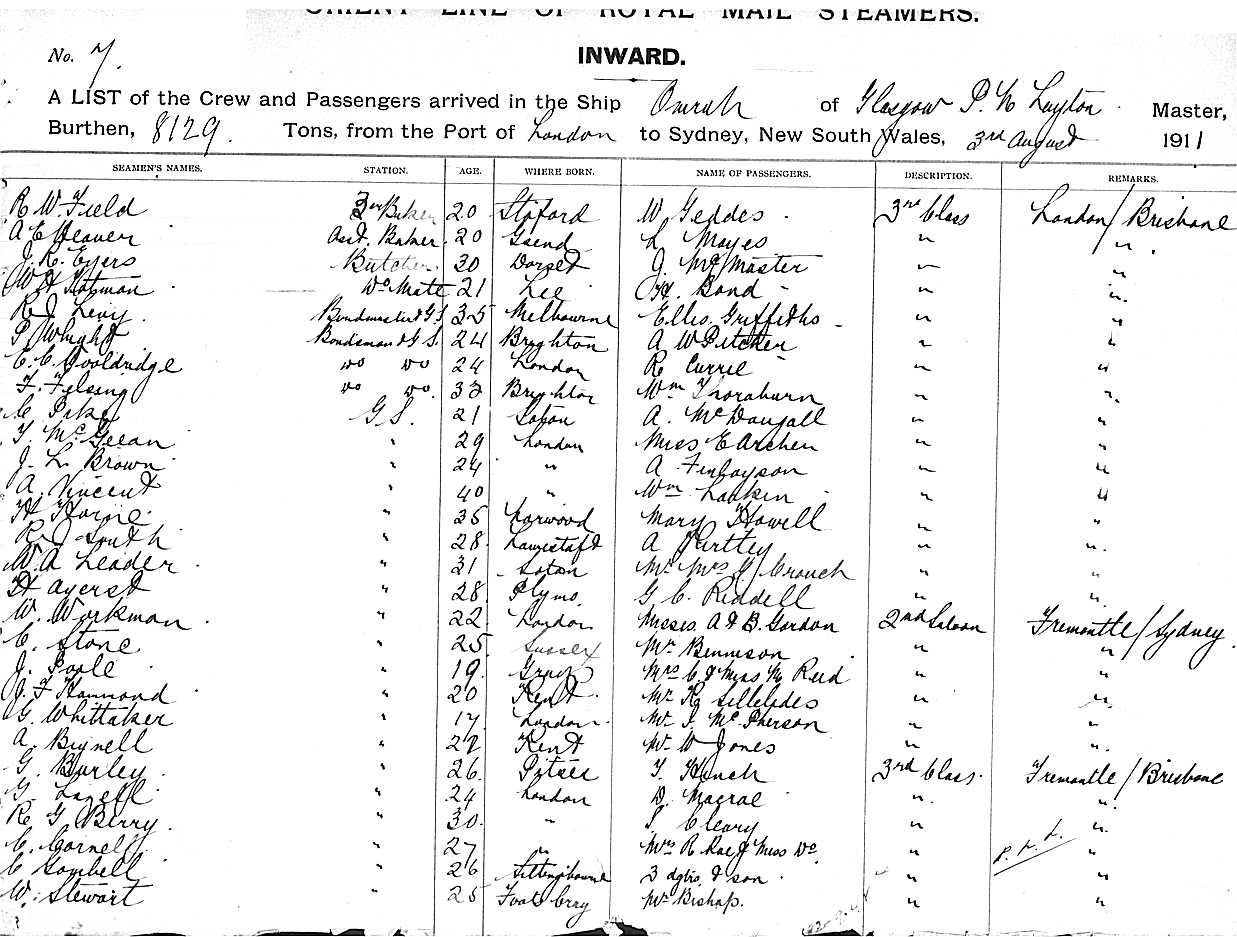 ORIENT LINE OF ROYAL MAIL STEAMERS.
No. 7.
INWARD.
A LIST of the Crew and Passengers arrived in the Ship Omrah of Glasgow P. N Layton Master,
Burthen, 8129. Tons, from the Port of London to Sydney, New South Wales, 3rd August 1911
SEAMEN'S NAMES. STATION. AGE. WHERE BORN. NAME OF PASSENGERS. DESCRIPTION. REMARKS.
R. W. Field 3rd Baker 20 W. Geddes 3rd Class London / Brisbane
A E Asst. Baker 20 Gsend L Mayes " "
J. R. Eyers Butcher 30 Dorset J. McMaster " "
Do Mate 21 Lee H. Bond " "
R J Levy Bandmaster & G S 35 Melbourne Ellis Griffiths " "
P Wright Bandsman & G S. 24 Brighton A W Pitcher " "
C. C. Wooldridge do do 24 London R Currie " "
F. Felsing do do. 33 Brighton Wm Thornburn " "
G.S. 21 Soton A. McDougall " "
" 29 London Miss E Archer " "
J. L. Brown " 24 " A Finlayson " "
A. Vincent " 40 " Wm " "
H Horne " 35 Mary Howell " "
R J South " 28 Lowestoft A " "
W. A Leader " 31 Soton Mr Mrs J Crouch " "
H Ayerst " 28 Plymo G C. Riddell " "
W. Workman " 22 London Misses A & B. Gordon 2nd Saloon Fremantle / Sydney
C. Stone " 25 Sussex Mr Bennison " "
J. Poole " 19 Grays Mrs C & Miss M Reid " "
J. F Hammond " 20 Kent Mr R " "
G. Whittaker " 17 London Mr J. McPherson " "
A Bignell " 27 Kent Mr W Jones " "
G. Burley " 26 Pitsea 3rd Class Fremantle / Brisbane
G " 24 London D. Macrae " "
R G Berry " 30 " Cleary " "
C. Cornell " 27 " Mrs R Rae & Miss Do " "
C " 26 Sittingbourne 3 dgtrs & son " "
W. Stewart " 25 Mr Bishop. " "